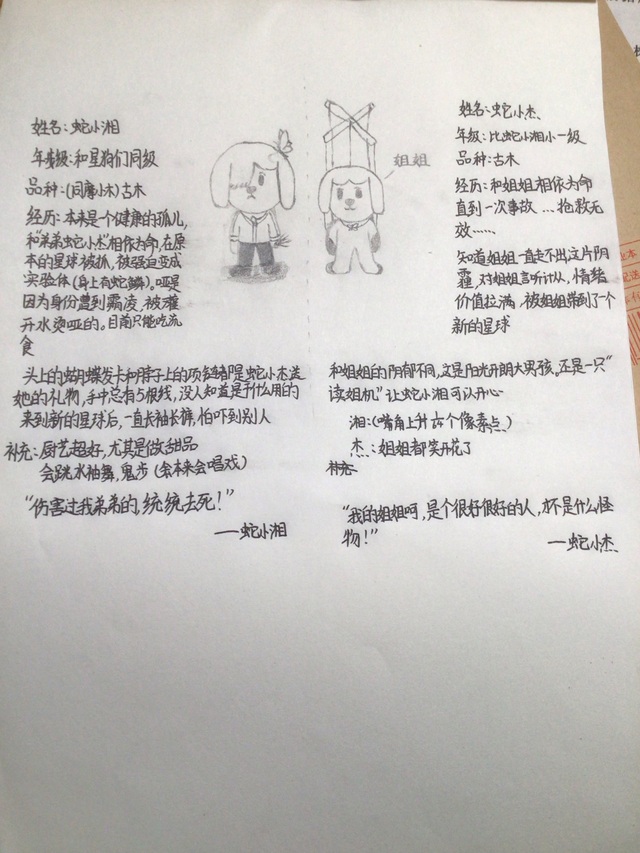 姓名：蛇小湘
年级：和星狗们同级
品种：(同摩小木)古木
经历：本来是个健康的孤儿，
和“弟弟蛇小杰”相依为命，在原
本的星球被抓，被强迫变成
实验体(身上有蛇鳞)。哑是
因为身份遭到霸凌，被灌
开水烫哑的。目前只能吃流
食
头上的蝴蝶发卡和脖子上的项链都是蛇小杰送
她的礼物，手中总有5根线，没人知道是干什么用的
来到新的星球后，一直长袖长裤，怕吓到别人
补充：厨艺超好，尤其是做甜品
会跳水袖舞，鬼步(会本来会唱戏)
“伤害过我弟弟的，统统去死！”
——蛇小湘
姐姐
姓名：蛇小杰
年级：比蛇小湘小一级
品种：古木
经历：和姐姐相依为命
直到一次事故…抢救无
效……
知道姐姐一直走不出这片阴
霾，对姐姐言听计从，情绪
价值拉满，被姐姐带到了个
新的星球
和姐姐的阴郁不同，这是阳光开朗大男孩。还是一只“
读姐机”让蛇小湘可以开心
湘：(嘴角上升六个像素点)
杰：姐姐都笑开花了
补充
“我的姐姐呵，是个很好很好的人，才不是什么怪
物！”
——蛇小杰